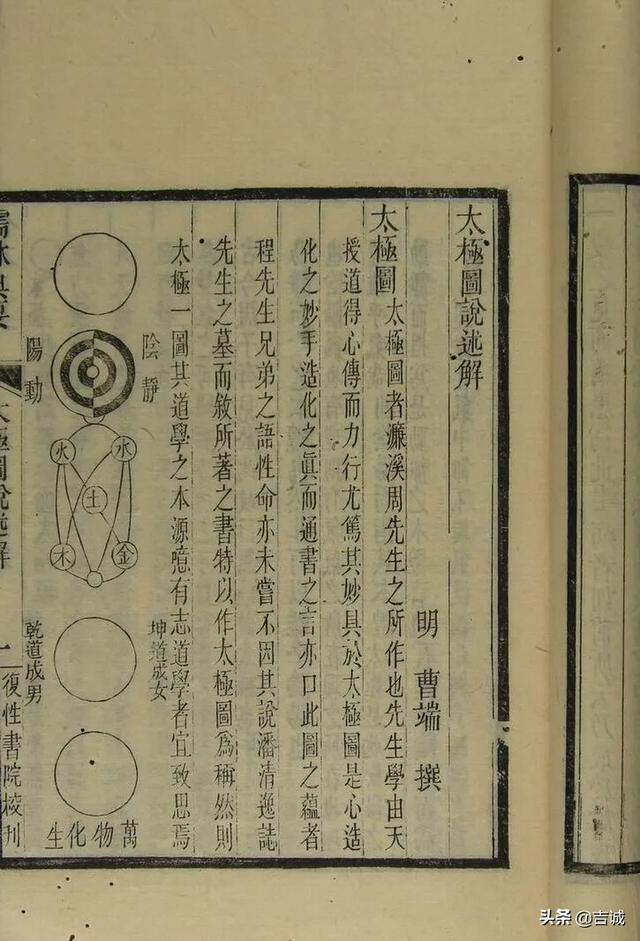 太極圖說述解
明 曹端 撰
太極圖 太極圖者濂溪周先生之所作也先生學由天
授道得心傳而力行尤篤其妙具於太極圖是心造
化之妙手造化之眞而通書之言亦口此圖之蘊者
程先生兄弟之語性命亦未嘗不因其說潘清逸誌
先生之墓而敘所著之書特以作太極圖爲稱然則
太極一圖其道學之本源噫有志道學者宜致思焉
陰靜
陽動
火
水
土
木
金
坤道成女
乾道成男
萬物化生
太極圖說述解
一
復性書院校刊
头条 @吉诚